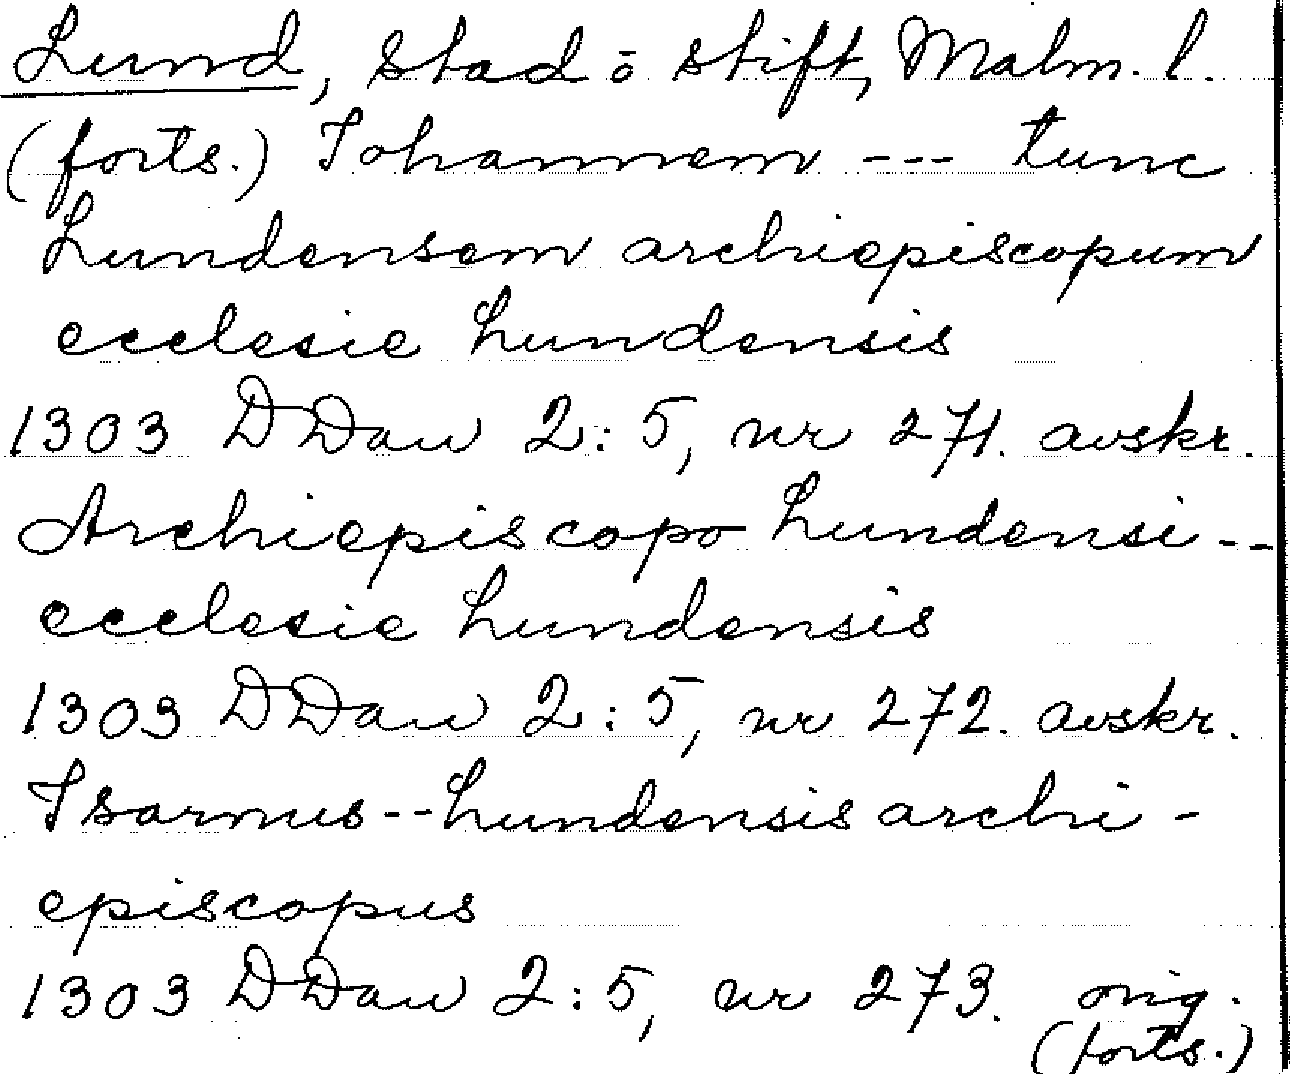 Lund, stad ō stift, Malm. l.
(forts.) Iohannem --- tunc
Lundensem archiepiscopum
ecclesie Lundensis
1303 DDan 2:5, nr 271. avskr.
Archiepiscopo Lundensi --
ecclesie Lundensis
1303 DDan 2:5, nr 272. avskr.
Isarnus -- Lundensis archi-
episcopus
1303 DDan 2:5, nr 273. orig.
(forts.)